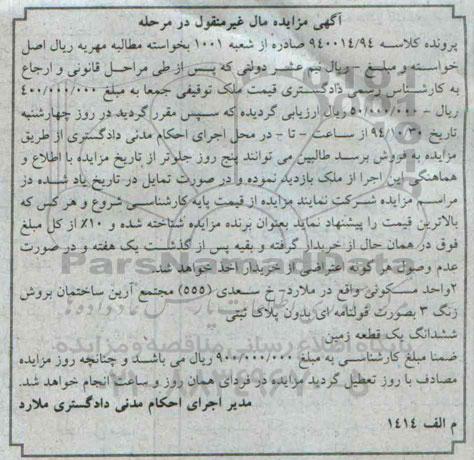 آگهی مزایده مال غیرمنقول در مرحله
پرونده کلاسه ۹۴۰۰۱۴/۹۴ صادره از شعبه ۱۰۰۱ بخواسته مطالبه مهریه ریال اصل
خواسته و مبلغ - ریال نیم عشر دولتی که پس از طی مراحل قانونی و ارجاع
به کارشناس رسمی دادگستری قیمت ملک توقیفی جمعا به مبلغ ۴۰۰/۰۰۰/۰۰۰
ریال - ۵۰۰/۰۰۰/۰۰۰ ریال ارزیابی گردیده که سپس مقرر گردید در روز چهارشنبه
تاریخ ۹۴/۱۰/۳۰ از ساعت - تا - در محل اجرای احکام مدنی دادگستری از طریق
مزایده به فروش برسد طالبین می توانند پنج روز جلوتر از تاریخ مزایده با اطلاع و
هماهنگی این اجرا از ملک بازدید نموده و در صورت تمایل در تاریخ یاد شده در
مراسم مزایده شرکت نمایند مزایده از قیمت پایه کارشناسی شروع و هر کس که
بالاترین قیمت را پیشنهاد نماید بعنوان برنده مزایده شناخته شده و ۱۰٪ از کل مبلغ
فوق در همان حال از خریدار گرفته و بقیه پس از گذشت یک هفته و در صورت
عدم وصول هر گونه اعتراضی از خریدار اخذ خواهد شد.
۲واحد مسکونی واقع در ملارد- خ سعدی (۵۵۵) مجتمع آرین ساختمان بروش
زنگ ۳ بصورت قولنامه ای بدون پلاک ثبتی
ششدانگ یک قطعه زمین
ضمنا مبلغ کارشناسی به مبلغ ۹۰۰/۰۰۰/۰۰۰ ریال می باشد و چنانچه روز مزایده
مصادف با روز تعطیل گردید مزایده در فردای همان روز و ساعت انجام خواهد شد.
مدیر اجرای احکام مدنی دادگستری ملارد
م الف ۱۴۱۴
ParsNamadData